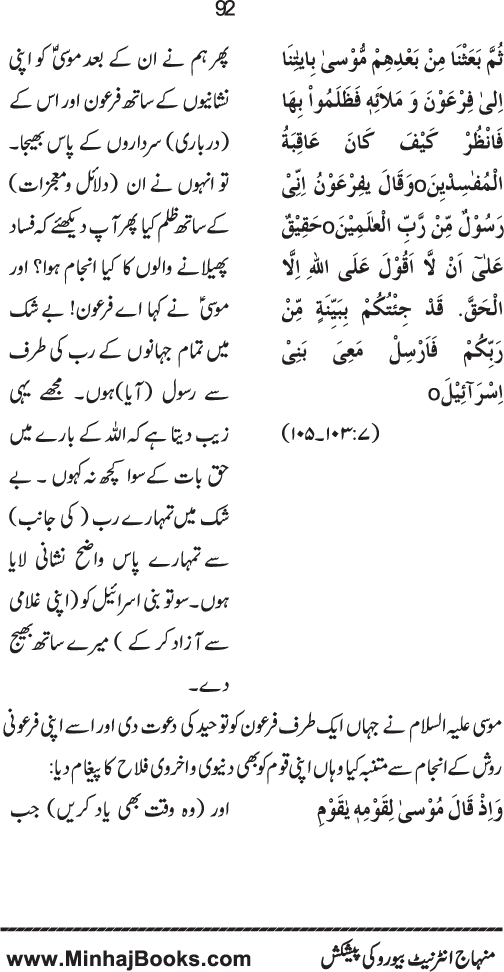 92
ثُمَّ بَعَثْنَا مِنْ بَعْدِهِمْ مُّوْسىٰ بِاٰيٰتِنَا
اِلىٰ فِرْعَوْنَ وَ مَلَائِهٖ فَظَلَمُواْ بِهَا
فَانْظُرْ كَيْفَ كَانَ عَاقِبَةُ
الْمُفْسِدِيْنَoوَقَالَ يٰفِرْعَوْنُ اِنِّىْ
رَسُوْلٌ مِّنْ رَّبِّ الْعٰلَمِيْنَoحَقِيْقٌ
عَلىٰٓ اَنْ لَّا اَقُوْلَ عَلَى اللهِ اِلَّا
الْحَقَّ. قَدْ جِئْتُكُمْ بِبَيِّنَةٍ مِّنْ
رَبِّكُمْ فَاَرْسِلْ مَعِىَ بَنِىْ
اِسْرَآئِيْلَo
(۷:۱۰۳۔۱۰۵)
پھر ہم نے ان کے بعد موسیٰؑ کو اپنی
نشانیوں کے ساتھ فرعون اور اس کے
(درباری) سرداروں کے پاس بھیجا۔
تو انہوں نے ان (دلائل ومعجزات)
کے ساتھ ظلم کیا پھر آپ دیکھئے کہ فساد
پھیلانے والوں کا کیا انجام ہوا؟ اور
موسیٰؑ نے کہا اے فرعون! بے شک
میں تمام جہانوں کے رب کی طرف
سے رسول (آیا) ہوں۔ مجھے یہی
زیب دیتا ہے کہ اللہ کے بارے میں
حق بات کے سوا کچھ نہ کہوں ۔ بے
شک میں تمہارے رب (کی جانب)
سے تمہارے پاس واضح نشانی لایا
ہوں۔ سو تو بنی اسرائیل کو (اپنی غلامی
سے آزاد کر کے ) میرے ساتھ بھیج
دے۔
موسی علیہ السلام نے جہاں ایک طرف فرعون کو توحید کی دعوت دی اور اسے اپنی فرعونی
روش کے انجام سے متنبہ کیا وہاں اپنی قوم کو بھی دنیوی و اخروی فلاح کا پیغام دیا:
وَاِذْ قَالَ مُوْسىٰ لِقَوْمِهٖ يٰقَوْمِ
اور (وہ وقت بھی یاد کریں) جب
منہاج انٹرنیٹ بیورو کی پیشکش
www.MinhajBooks.com